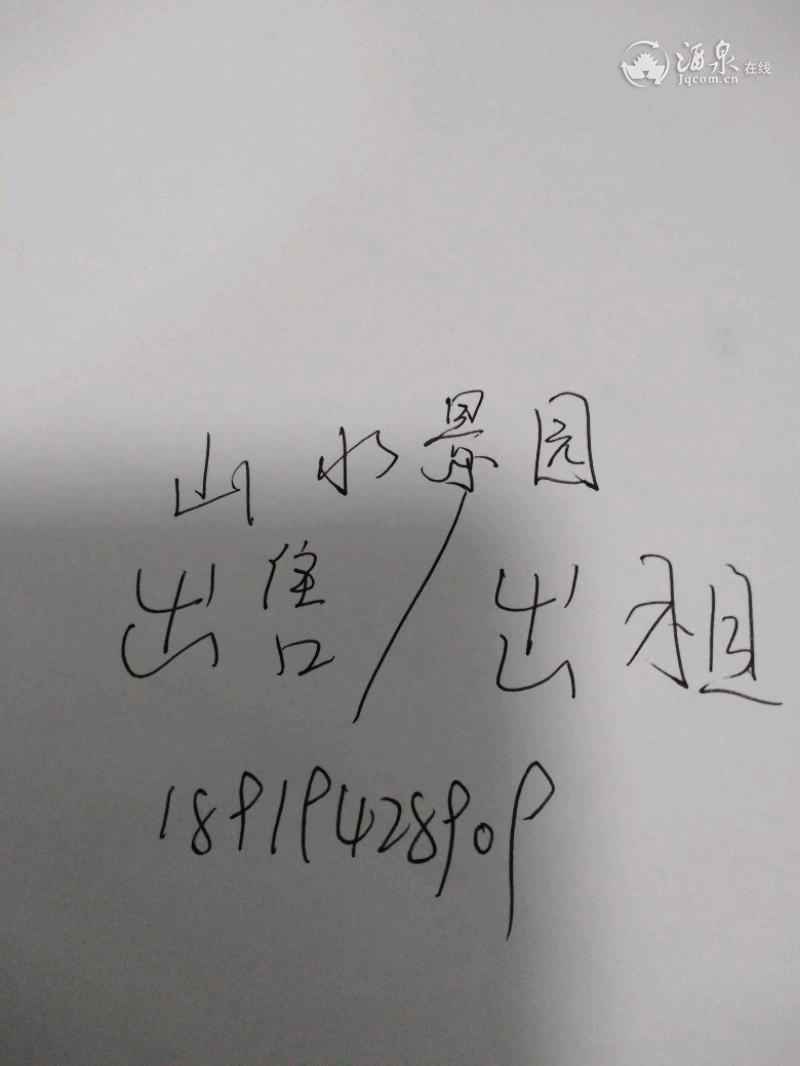 酒泉在线
Jqcom.cn
山水景园
出售/出租
18919428909